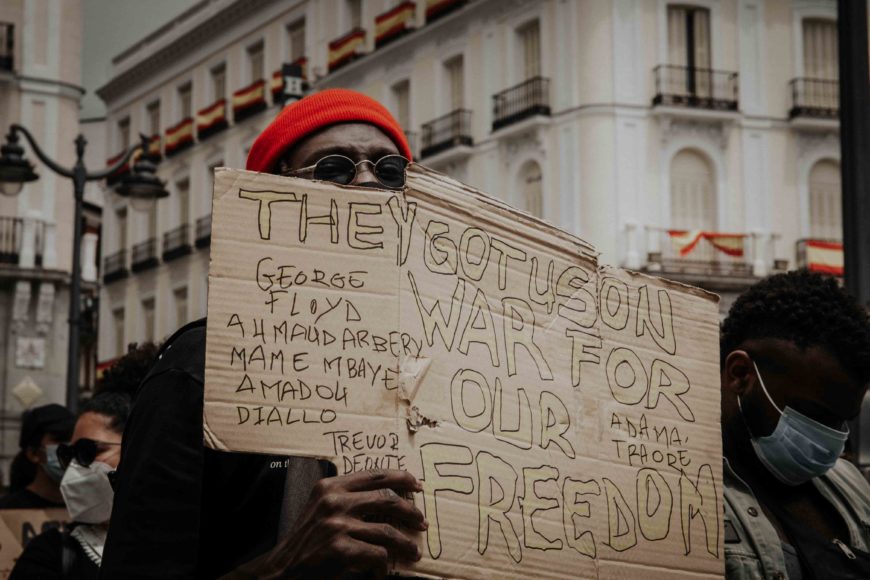 THEY GOT US ON
WAR FOR FOR
OUR
FREEDOM
GEORGE
FLOYD
AHMAUD ARBERY
MAME MBAYE
AMADOU
DIALLO
TREVOR
DEONTE
ADAMA
TRAORE
on th
H